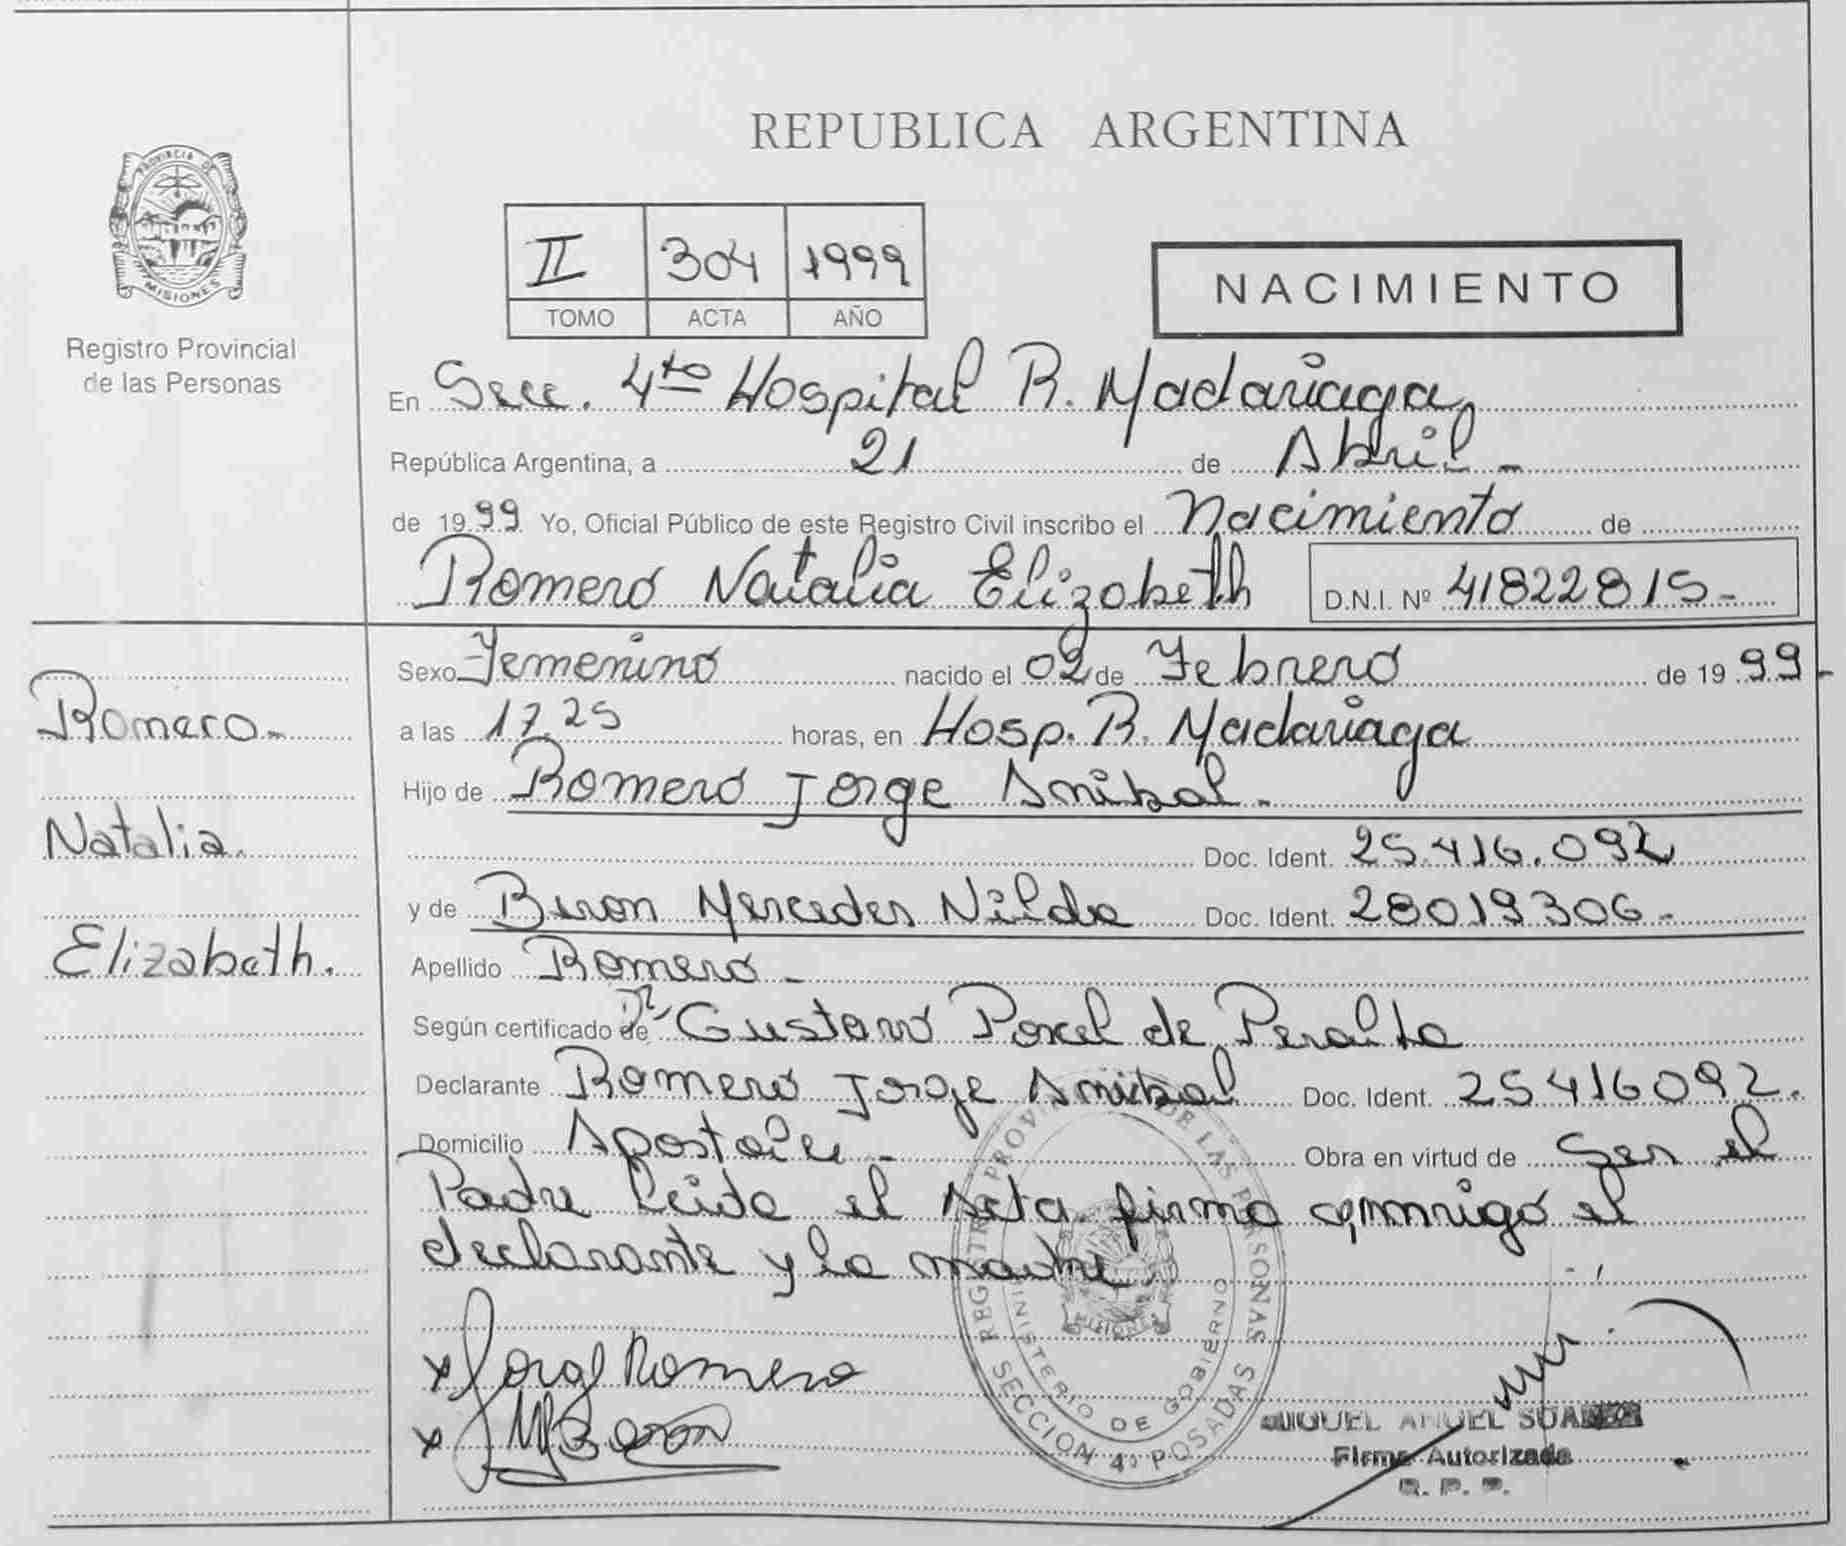 REPUBLICA ARGENTINA
PROVINCIA DE
MISIONES
Registro Provincial
de las Personas
II 304 1999
TOMO ACTA AÑO
NACIMIENTO
En Secc. 4ta Hospital R. Madariaga
República Argentina, a 21 de Abril -
de 1999 Yo, Oficial Público de este Registro Civil inscribo el Nacimiento de
Romero Natalia Elizabeth D.N.I. Nº 41822815-
Romero-
Natalia.
Elizabeth.
Sexo Femenino nacido el 02 de Febrero de 1999-
a las 17,25 horas, en Hosp. R. Madariaga
Hijo de Romero Jorge Anibal -
Doc. Ident. 25.416.092
y de Beron Mercedes Nilda Doc. Ident. 28019306-
Apellido Romero -
Según certificado de Dr Gustavo Poxel de Peralta
Declarante Romero Jorge Anibal Doc. Ident. 25416092.
Domicilio Apostoles - Obra en virtud de Ser el
Padre Leida el Acta firma conmigo el
declarante y la madre.
x Jorge Romero
x MBeron
REGISTRO PROVINCIAL DE LAS PERSONAS
MINISTERIO DE GOBIERNO
MISIONES
SECCION 4ª POSADAS
MIGUEL ANGEL SUAREZ
Firma Autorizada
R. P. P.